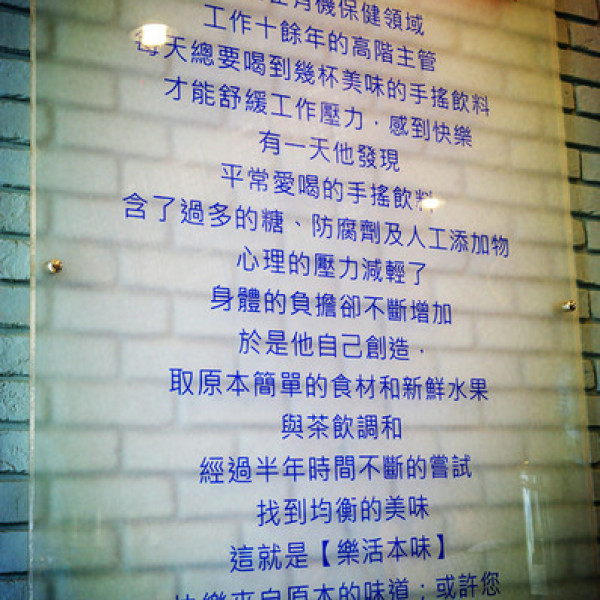 有機保健領域
工作十餘年的高階主管
每天總要喝到幾杯美味的手搖飲料
才能舒緩工作壓力．感到快樂
有一天他發現
平常愛喝的手搖飲料
含了過多的糖、防腐劑及人工添加物
心理的壓力減輕了
身體的負擔卻不斷增加
於是他自己創造．
取原本簡單的食材和新鮮水果
與茶飲調和
經過半年時間不斷的嘗試
找到均衡的美味
這就是【樂活本味】
快樂來自原本的味道；或許您